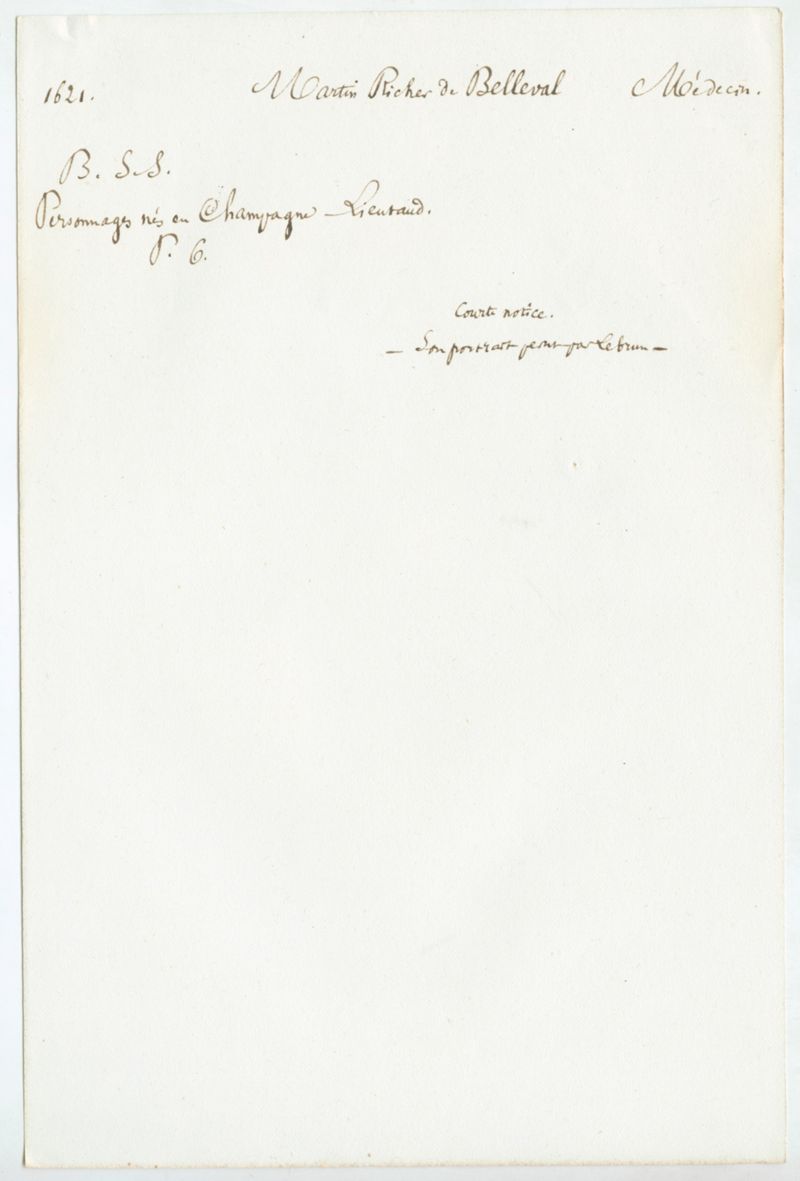 1621. Martin Richer de Belleval Médecin.
B. S. S.
Personnages nés en Champagne – Lieutaud.
P. 6.
Courte notice.
— Son portrait peint par Lebrun —